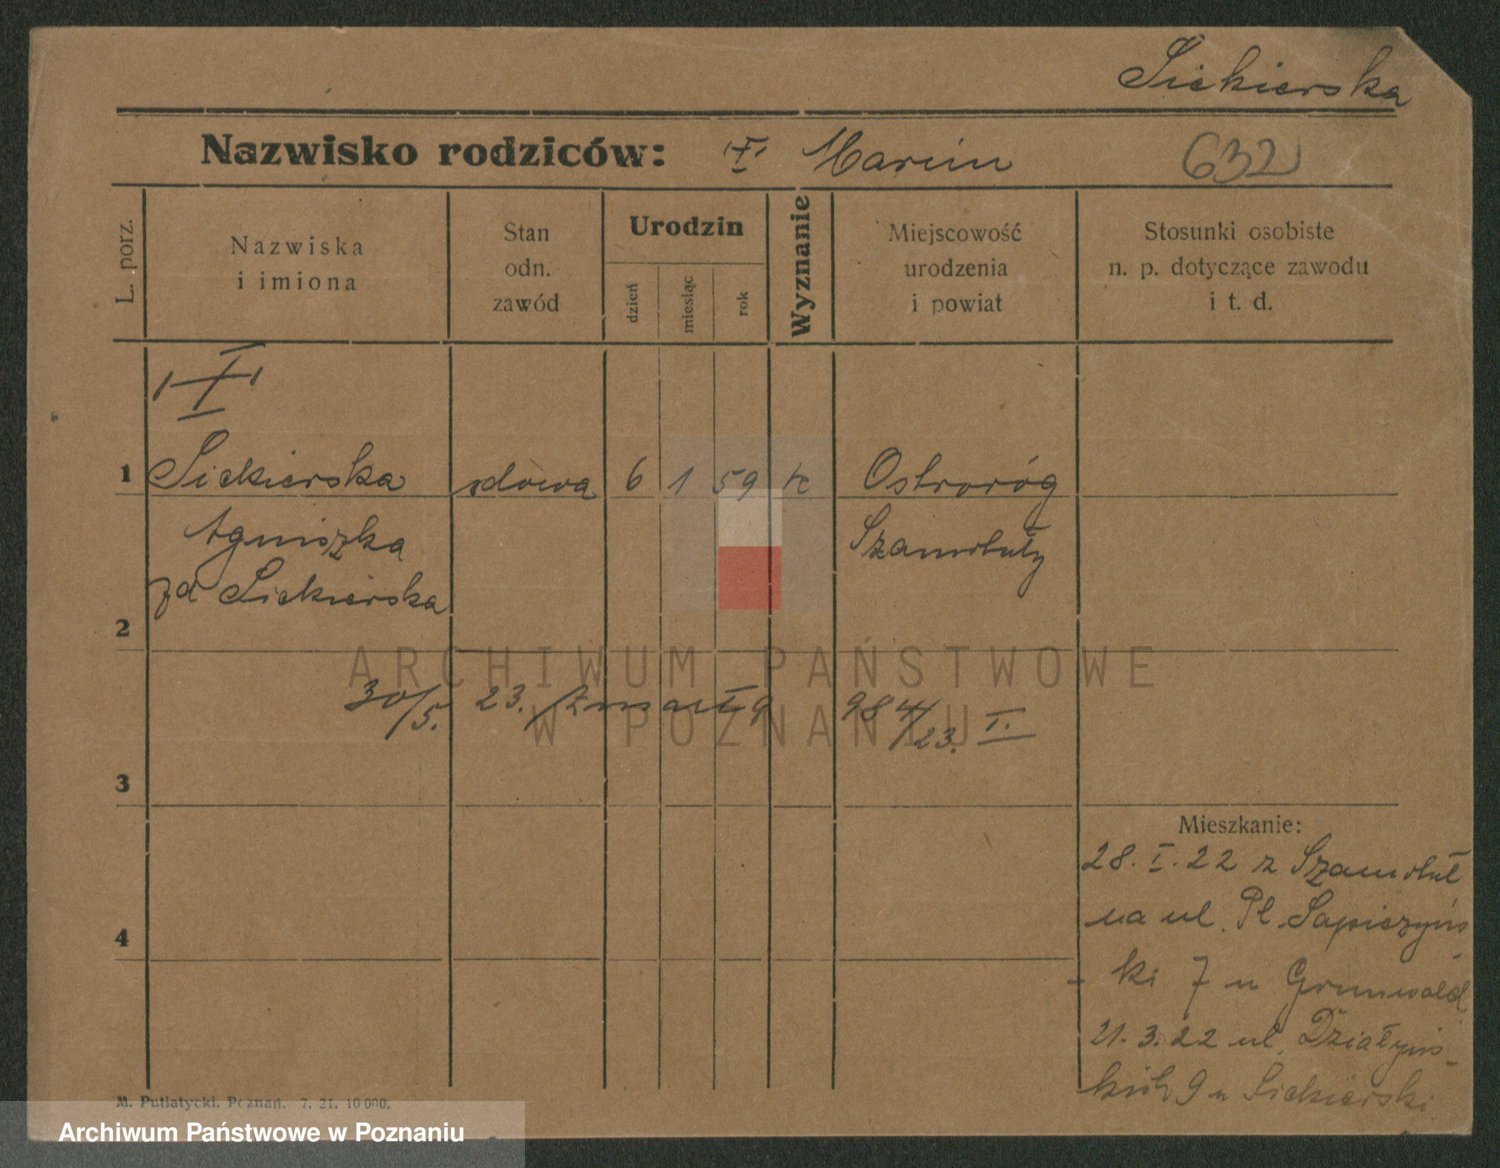 Siekierska
Nazwisko rodziców: Marcin 632
L. porz.
Nazwiska
i imiona
Stan
odn.
zawód
Urodzin
dzień
miesiąc
rok
Wyznanie
Miejscowość
urodzenia
i powiat
Stosunki osobiste
n. p. dotyczące zawodu
i t. d.
1 Siekierska wdowa 6 1 59 k Ostroróg
Agnieszka Szamotuły
zd Siekierska
2
ARCHIWUM PAŃSTWOWE
W POZNANIU
30/5. 23. zmarła 984/23. I.
3
Mieszkanie:
28. I. 22 z Szamotuł
na ul. Pl. Sapieżyńs
4
- ki 7 u Grunwald
21. 3. 22 ul. Działyńs-
kich 9 u Siekierski
M. Putiatycki. Poznań. 7. 21. 10 000.
Archiwum Państwowe w Poznaniu